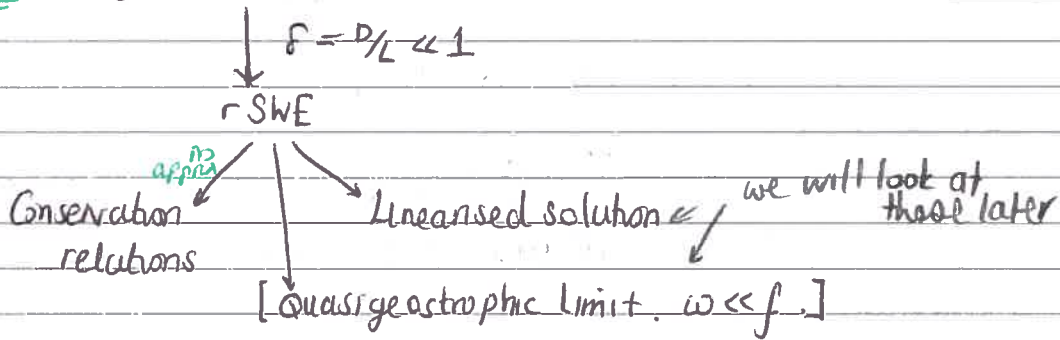 δ = D/L << 1
r SWE
no
approx
Conservation
relations
Linearised solution
we will look at
these later
[Quasigeostrophic limit. ω << f.]